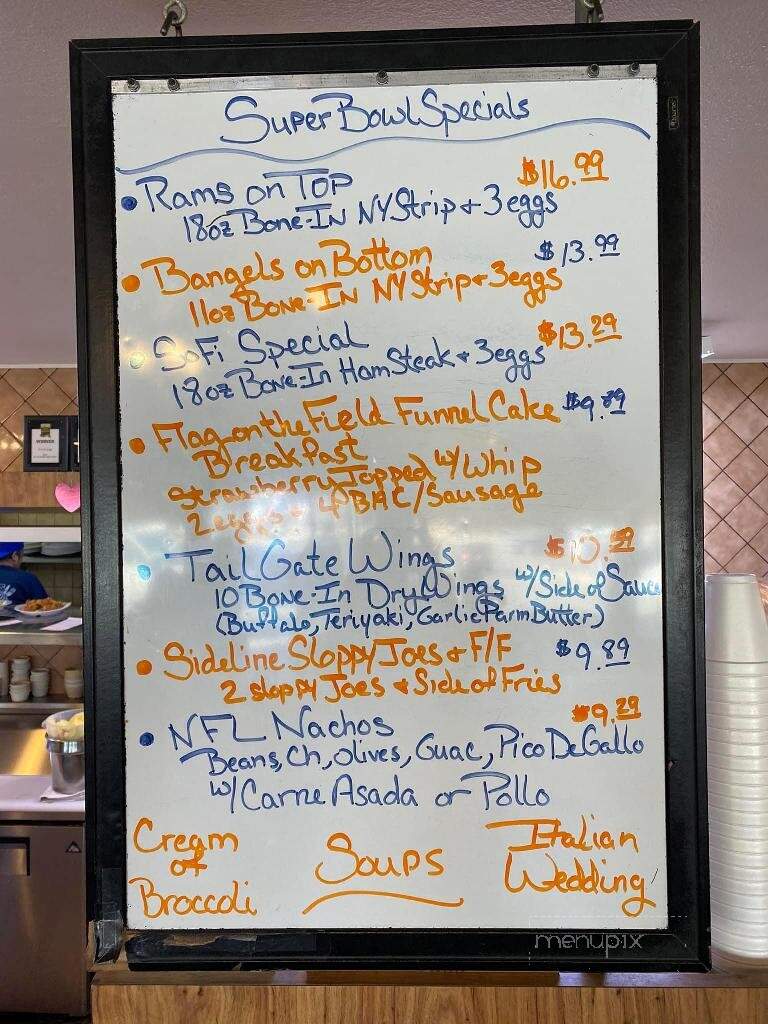 Super Bowl Specials
• Rams on TOP $16.99
18oz Bone-In NY Strip + 3 eggs
• Bangels on Bottom $13.99
11oz Bone-In NY Strip + 3 eggs
• SoFi Special $13.29
18oz Bone-In Ham Steak + 3 eggs
• Flag on the Field Funnel Cake $9.89
Breakfast
Strawberry Topped w/ Whip
2 eggs + 4 BAC/Sausage
• Tail Gate Wings
10 Bone-In Dry Wings w/ Side of Sauce
(Buffalo, Teriyaki, Garlic Parm Butter)
• Sideline Sloppy Joes + F/F $9.89
2 sloppy Joes + Side of Fries
• NFL Nachos $9.29
Beans, Ch, Olives, Guac, Pico De Gallo
w/ Carne Asada or Pollo
Cream of Broccoli
Soups
Italian Wedding
menupix